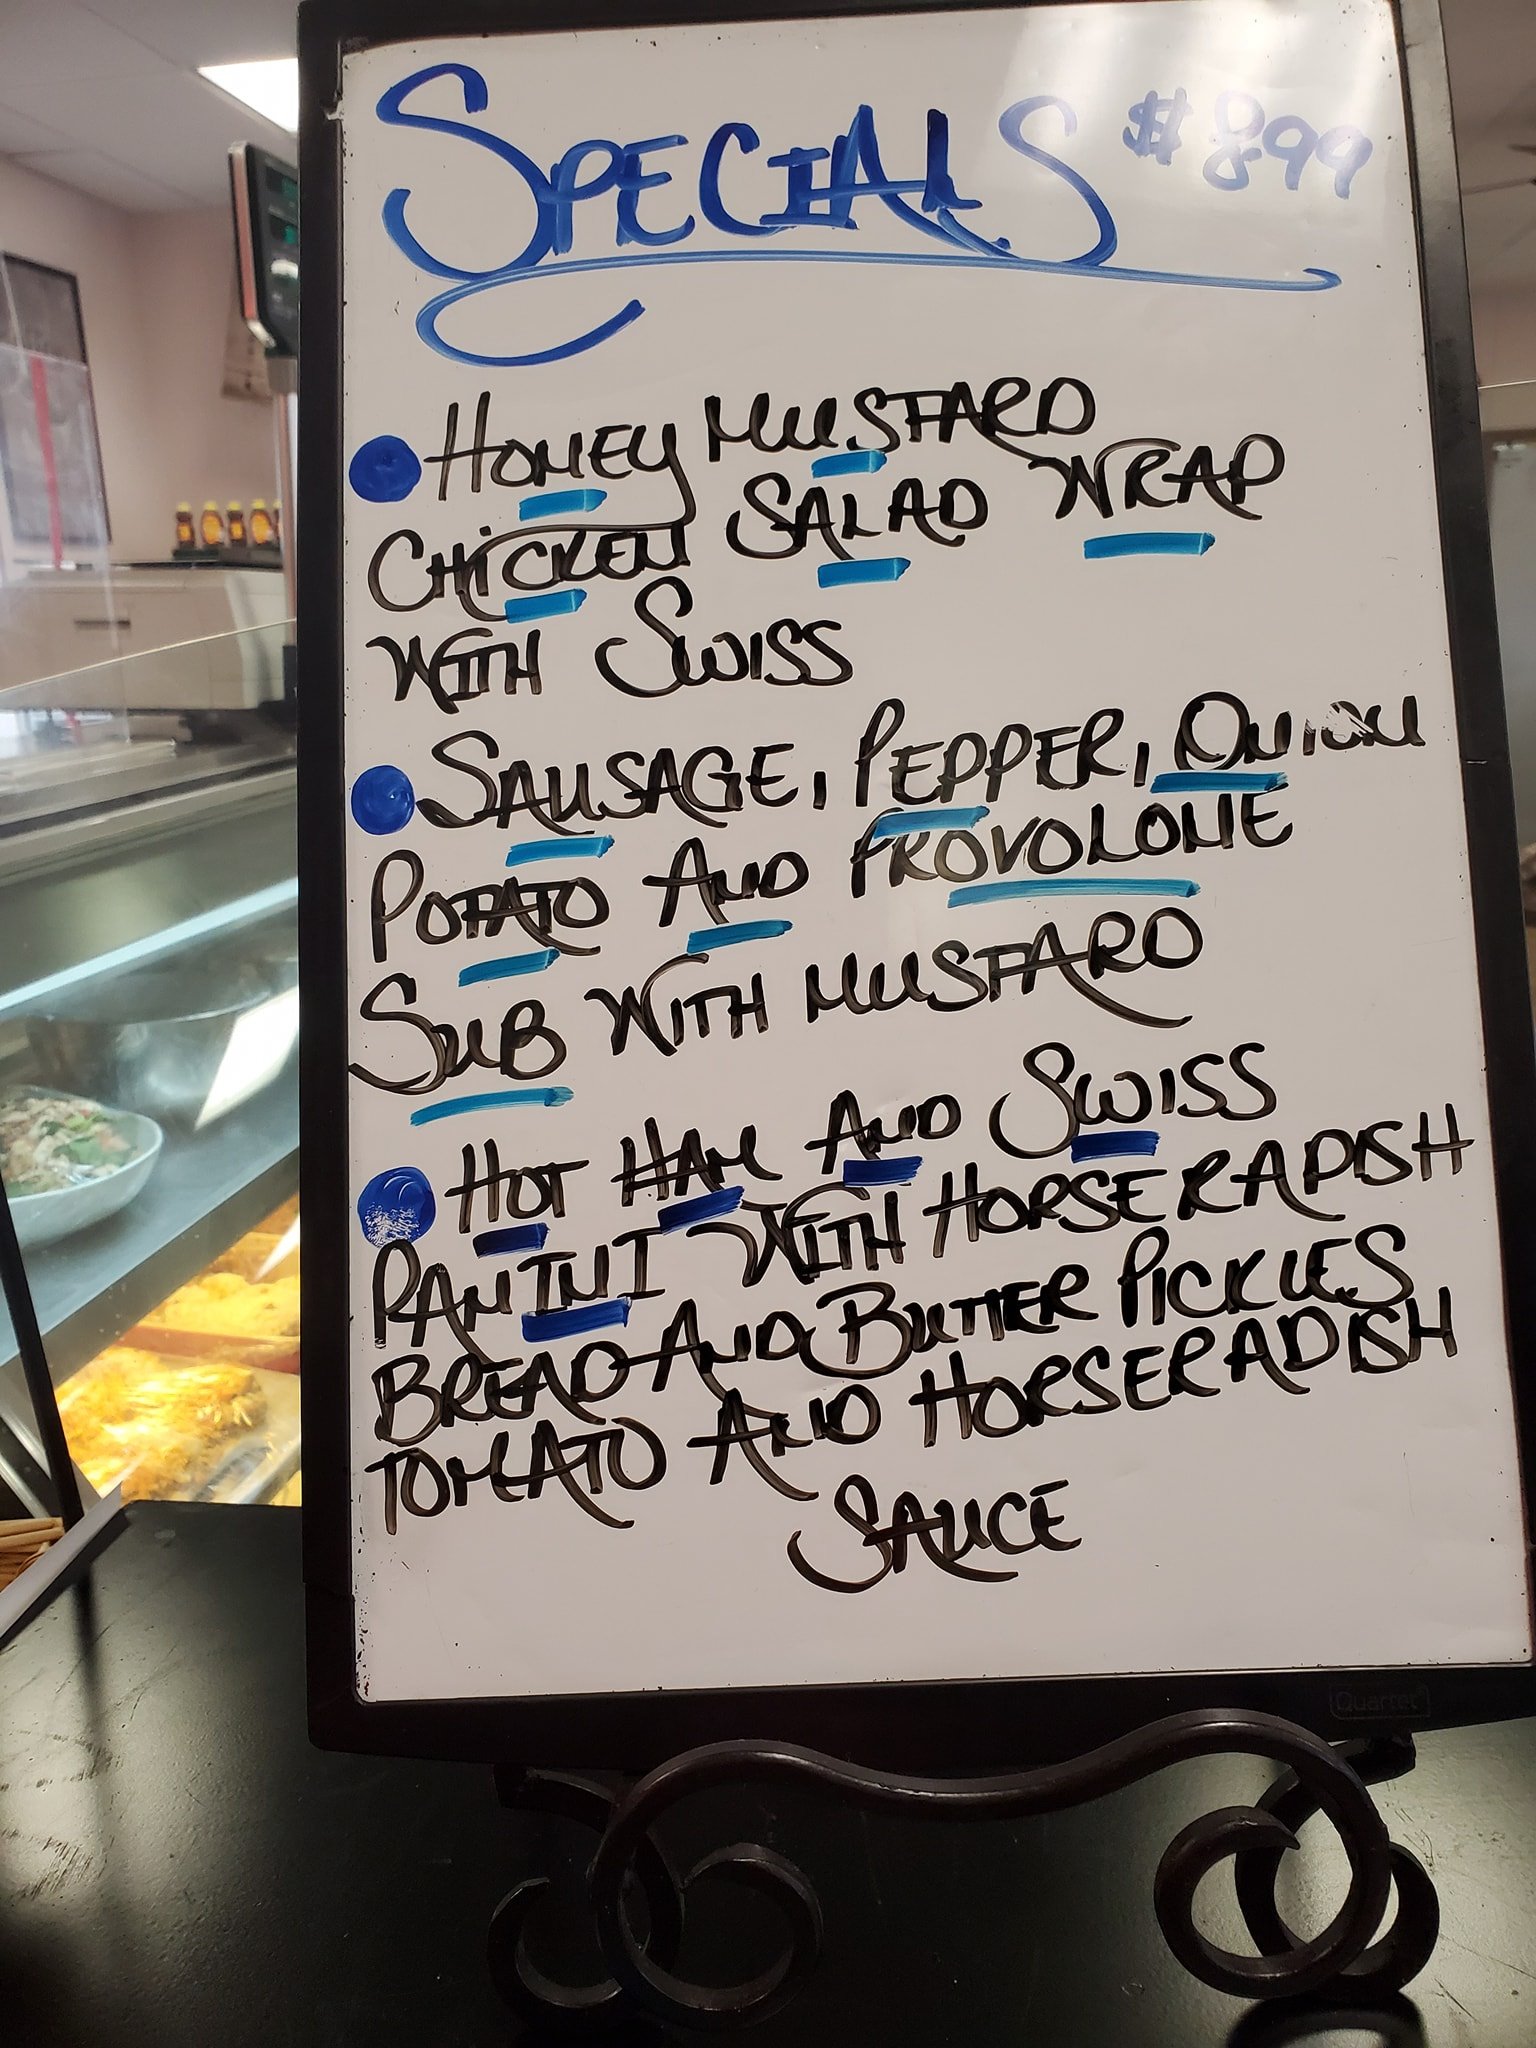 SPECIALS $8.99
HONEY MUSTARD
CHICKEN SALAD WRAP
WITH SWISS
SAUSAGE, PEPPER, ONION
POTATO AND PROVOLONE
SUB WITH MUSTARD
HOT HAM AND SWISS
PANINI WITH HORSERADISH
BREAD AND BUTTER PICKLES
TOMATO AND HORSERADISH
SAUCE
Quartet